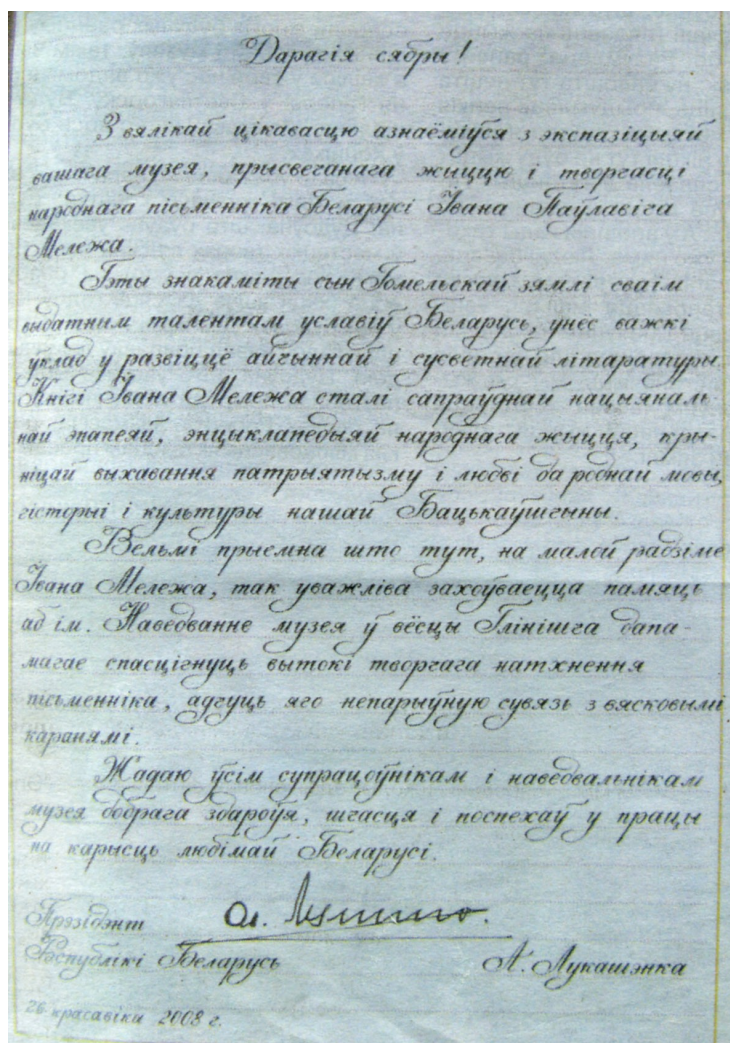 Дарагія сябры!
З вялікай цікавасцю азнаёміўся з экспазіцыяй
вашага музея, прысвечанага жыццю і творчасці
народнага пісьменніка Беларусі Івана Паўлавіча
Мележа.
Гэты знакаміты сын Гомельскай зямлі сваім
выдатным талентам уславіў Беларусь, унёс важкі
ўклад у развіццё айчыннай і сусветнай літаратуры.
Кнігі Івана Мележа сталі сапраўднай нацыяналь-
най эпапеяй, энцыклапедыяй народнага жыцця, кры-
ніцай выхавання патрыятызму і любві да роднай мовы,
гісторыі і культуры нашай Бацькаўшчыны.
Вельмі прыемна што тут, на малой радзіме
Івана Мележа, так уважліва захоўваецца памяць
аб ім. Наведванне музея ў вёсцы Глінішча дапа-
магае спасцігнуць вытокі творчага натхнення
пісьменніка, адчуць яго непарыўную сувязь з вясковымі
каранямі.
Жадаю ўсім супрацоўнікам і наведвальнікам
музея добрага здароўя, шчасця і поспехаў у працы
на карысць любімай Беларусі.
Прэзідэнт
Рэспублікі Беларусь А. Лукашэнка
26 красавіка 2008 г.